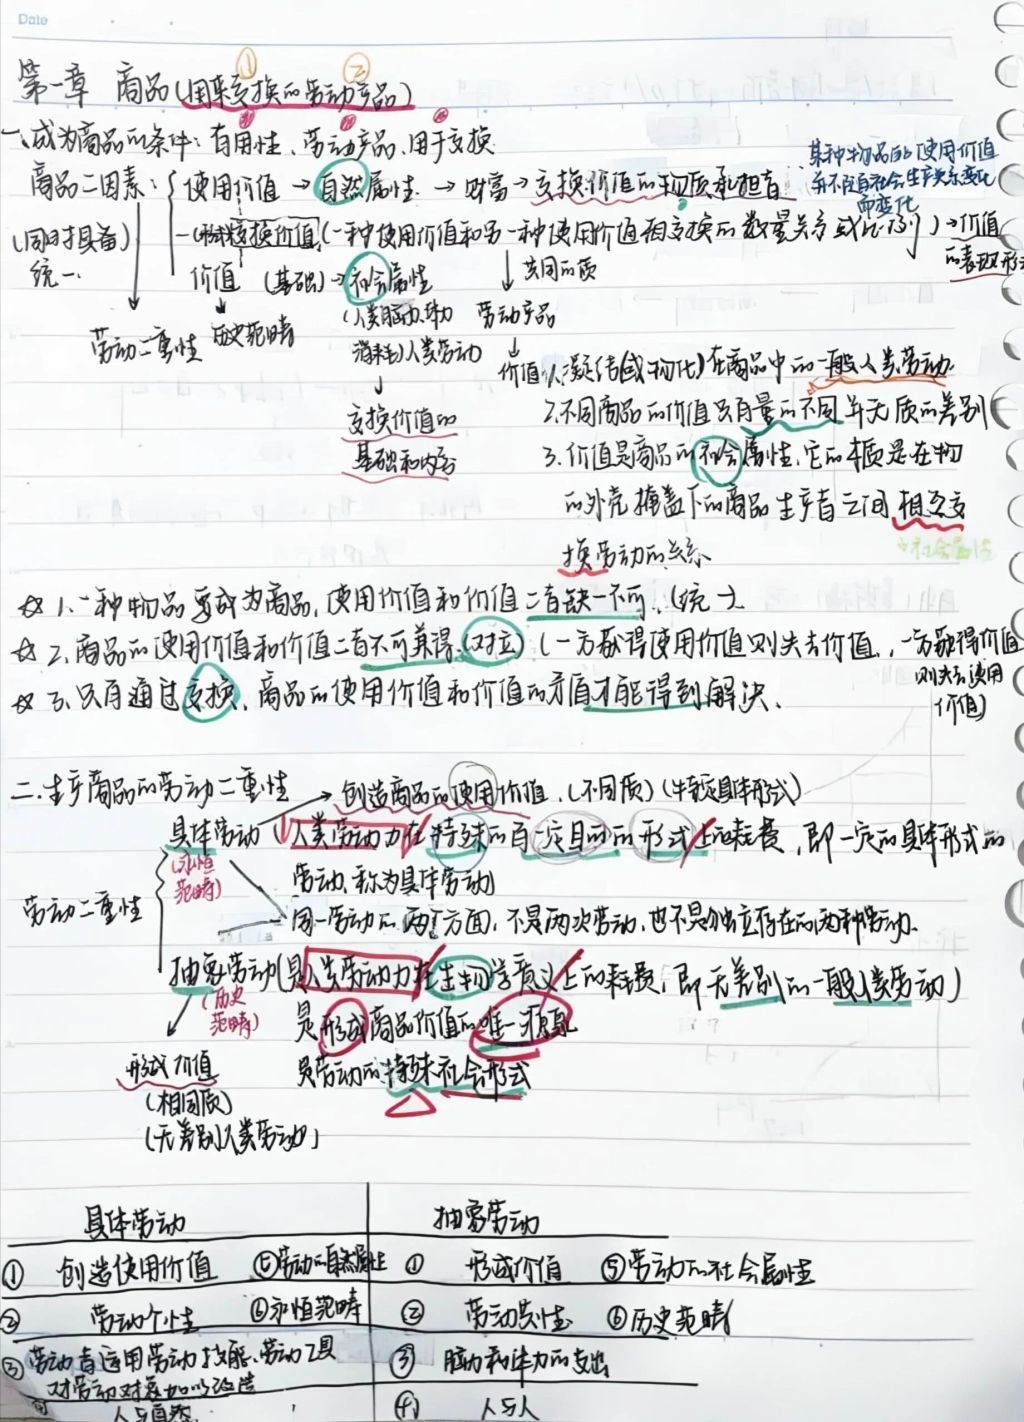 Date
① ②
第一章 商品(用来交换的劳动产品)
一、成为商品的条件:有用性、劳动产品、用于交换
某种物品的使用价值
并不随社会生产关系变化
而变化
商品二因素:{使用价值→自然属性→财富→交换价值的物质承担者
(同时具备) 交换价值(一种使用价值和另一种使用价值相交换的数量关系或比例)→价值
的表现形式
统一 价值(基础)→社会属性 ↓共同的质
劳动二重性 历史范畴 (人类脑力、体力 劳动产品
消耗)人类劳动
价值1.凝结(或物化)在商品中的一般人类劳动
交换价值的 2.不同商品的价值只有量的不同并无质的差别
基础和内容 3.价值是商品的社会属性,它的本质是在物
的外壳掩盖下的商品生产者之间相互交
换劳动的关系
社会属性
☆1、一种物品要成为商品,使用价值和价值二者缺一不可.(统一)
☆2、商品的使用价值和价值二者不可兼得.(对立)(一方获得使用价值则失去价值,一方获得价值
则失去使用
价值)
☆3、只有通过交换,商品的使用价值和价值的矛盾才能得到解决.
二.生产商品的劳动二重性
→创造商品的使用价值.(不同质)(特定具体形式)
具体劳动(人类劳动力在特殊的有一定目的的形式上的耗费,即一定的具体形式的
(永恒
范畴) 劳动,称为具体劳动)
劳动二重性 同一劳动的两个方面,不是两次劳动,也不是独立存在的两种劳动.
抽象劳动(是人类劳动力在生物学意义上的耗费,即无差别的一般人类劳动)
(历史
范畴) 是形成商品价值的唯一源泉
形成价值 是劳动的特殊社会形式
(相同质)
(无差别人类劳动)
具体劳动 抽象劳动
① 创造使用价值 ⑤劳动的自然属性 ① 形成价值 ⑤劳动的社会属性
② 劳动个性 ⑥永恒范畴 ② 劳动共性 ⑥历史范畴
③ 劳动者运用劳动技能、劳动工具 ③ 脑力和体力的支出
对劳动对象加以改造
④ 人与自然 ④ 人与人